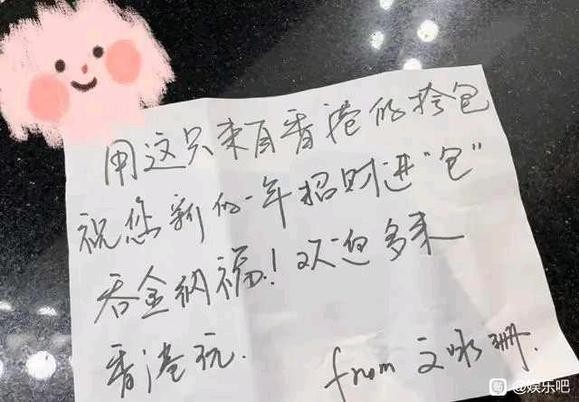 用这只来自香港的挎包
祝您新的一年招财进“包”
吞金纳福！欢迎多来
香港玩.
from 文咏珊.
@娱乐吧